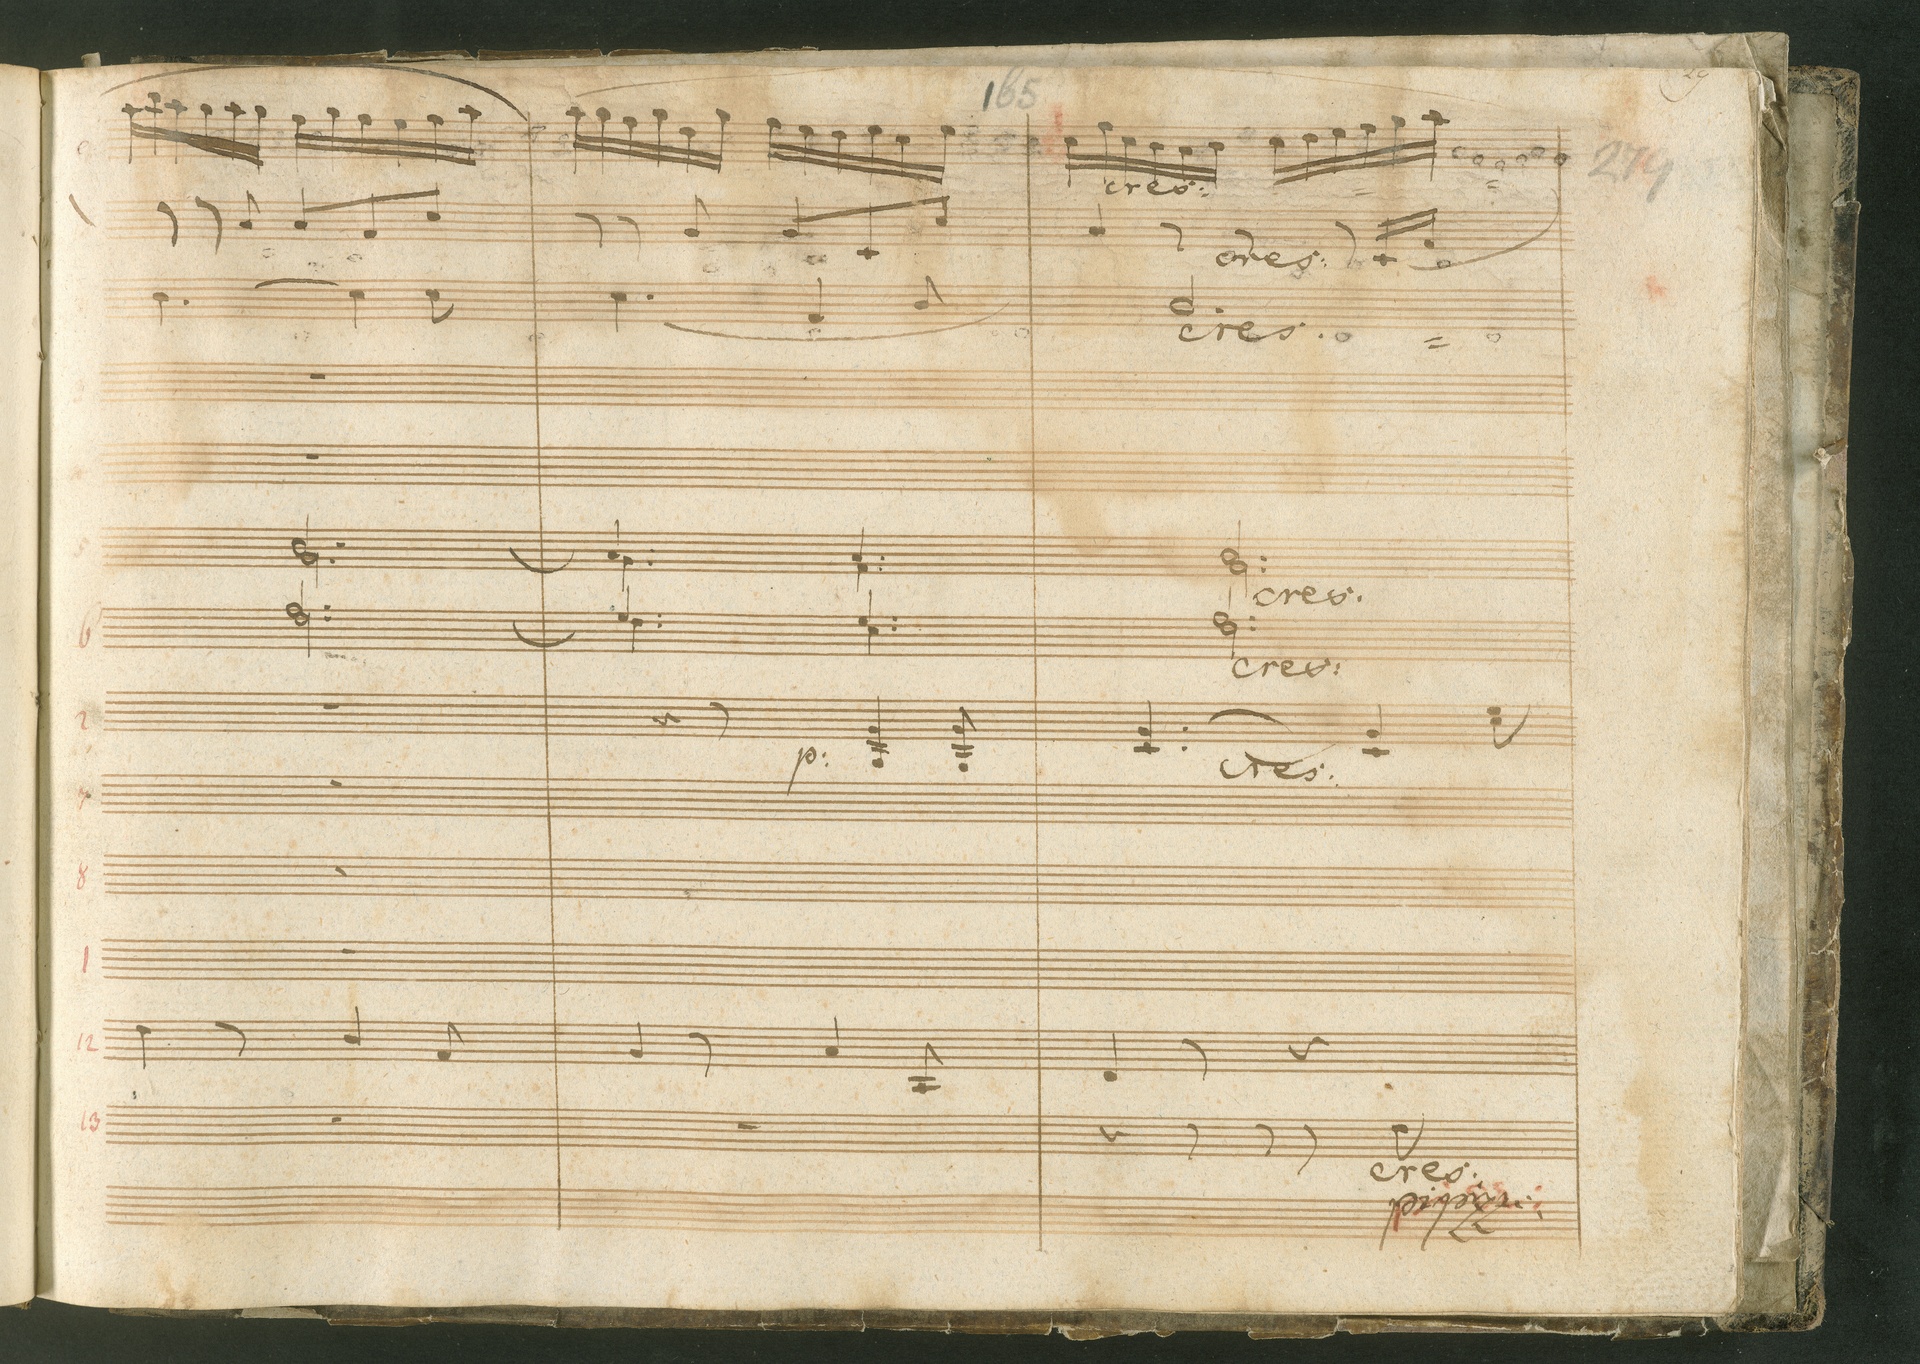 165
29
279
cres:
cres:
cres.
5
cres.
6
cres:
2
p:
cres:
7
8
1
12
13
cres: